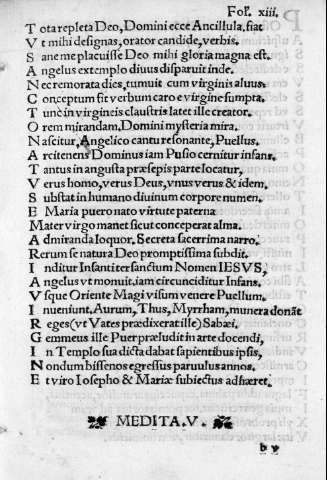 Fol. xiii.
T ota repleta Deo, Domini ecce Ancillula, fiat
V t mihi designas, orator candide, verbis.
S ane me placuisse Deo mihi gloria magna est.
A ngelus extemplo diuus disparuit inde.
N ec remorata dies, tumuit cum virginis aluus.
C onceptum fit verbum caro e virgine sumpta.
T unc in virgineis claustris latet ille creator.
O rem mirandam, Domini mysteria mira.
N ascitur, Angelico cantu resonante, Puellus.
A rcitenens Dominus iam Pusio cernitur infans.
T antus in angusta præsepis parte locatur,
V erus homo, verus Deus, vnus verus & idem.
S ubstat in humano diuinum corpore numen.
E Maria puero nato virtute paterna
Mater virgo manet sicut conceperat alma.
A dmiranda loquor. Secreta sacerrima narro.
Rerum se natura Deo promptissima subdit.
I nditur Infanti ter sanctum Nomen IESVS,
A ngelus vt monuit, iam circunciditur Infans.
V sque Oriente Magi visum venere Puellum.
I nueniunt. Aurum, Thus, Myrrham, munera donāt
R eges (vt Vates prædixerat ille) Sabæi.
G emmeus ille Puer præludit in arte docendi,
I n Templo sua dicta dabat sapientibus ipsis,
N ondum bissenos egressus paruulus annos.
E t viro Iosepho & Mariæ subiectus adhæret.
MEDITA. V.
b v